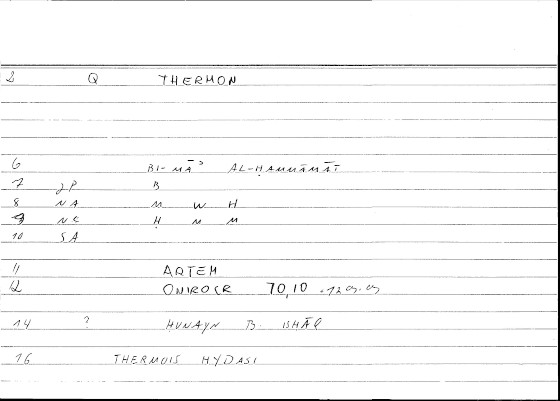 2 Q THERMON
6 BI-MĀʾ AL-ḤAMMĀMĀT
7 JP B
8 NA M W H
9 NC Ḥ M M
10 SA
11 ARTEM
12 ONIROCR 70,10
14 ? HUNAYN B. ISHĀQ
16 THERMUIS HYDASI